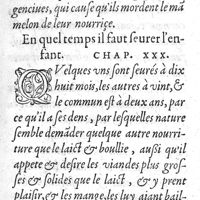 genciues, qui cause qu'ils mordent le mā
melon de leur nourriçe.
En quel temps il faut seurer l'en-
fant. CHAP. XXX.
QVelques vns sont seurés à dix
huit mois, les autres à vint, &
le commun est à deux ans, par
ce qu'il a ses dens, par lesquelles nature
semble demāder quelque autre nourri-
ture que le laict & boullie, aussi qu'il
appete & desire les viandes plus gros-
ses & solides que le laict, & y prent
plaisir, & les mange, les luy aiant bail-